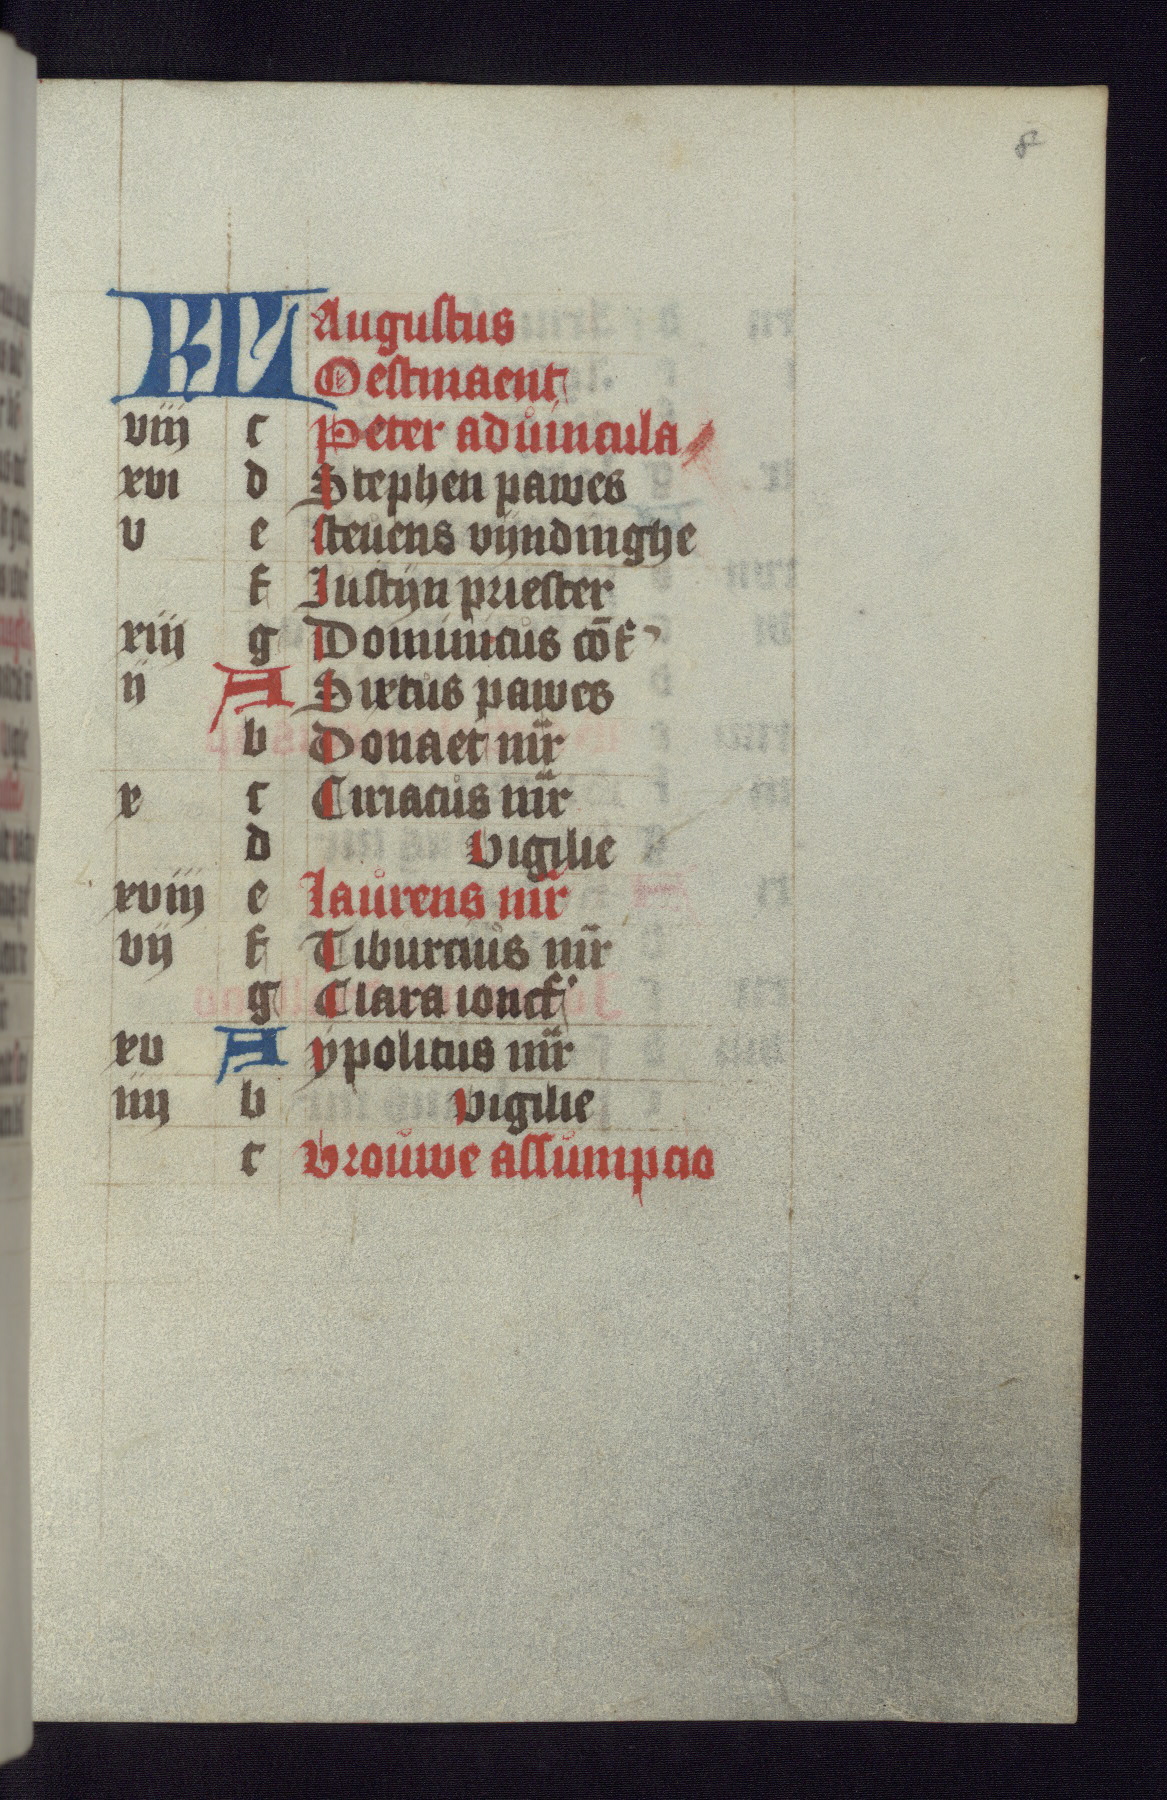 8
KL Augustus
Oestmaent
viii c Peter aduincula
xvi d Stephen pawes
v e steuens vijndinghe
f Justijn priester
xiii g Dominicus cōf
ij A Sixtus pawes
b Donaet mr̄
x c Ciriacus mr̄
d vigilie
xviij e laurens mr̄
vij f Tiburcius mr̄
g Clara ioncf
xv A ypolitus mr̄
iiij b vigilie
c vrouwe assumpcio